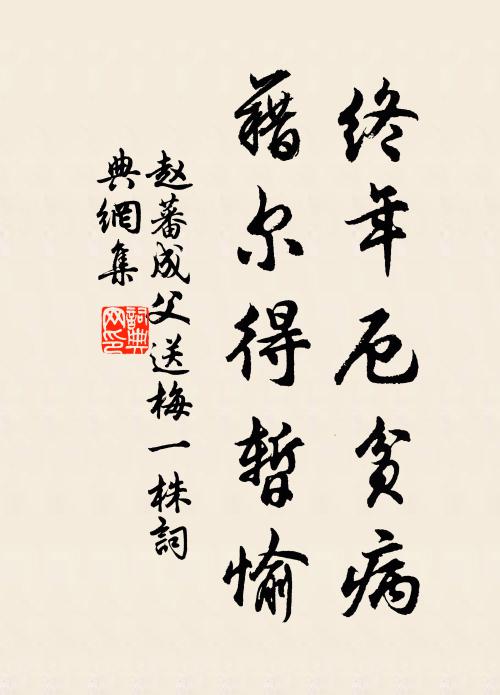 终年厄贫病
藉尔得暂愉
赵蕃成父送梅一株詞
典網集
詞典网印